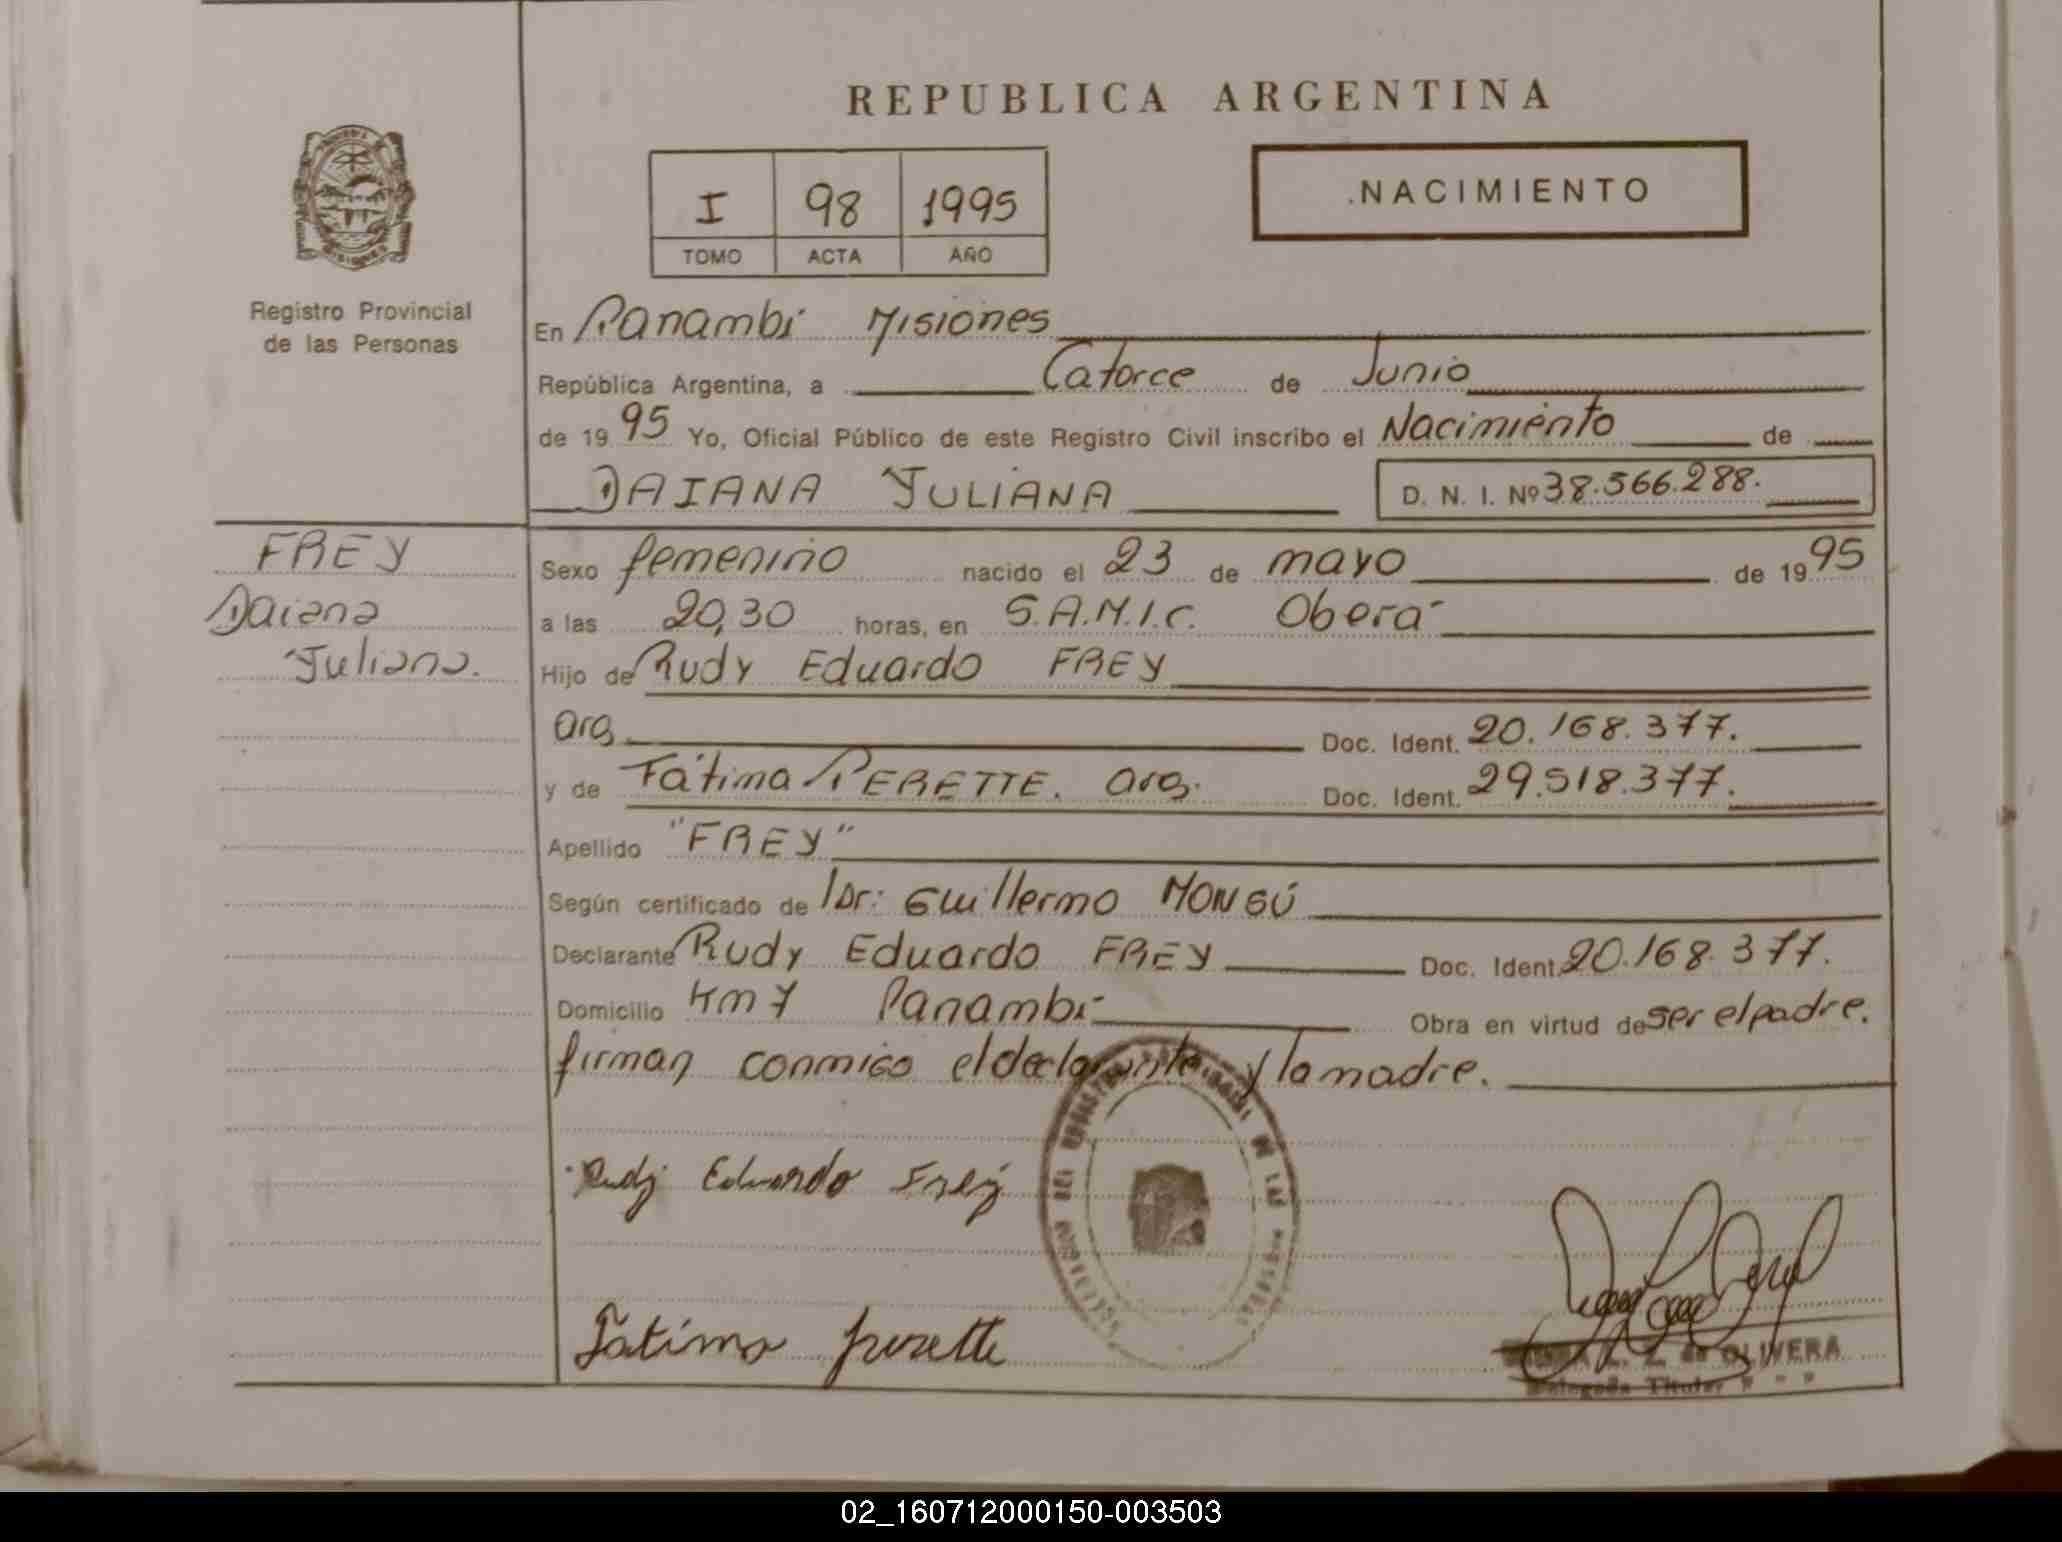 REPUBLICA ARGENTINA
I 98 1995
TOMO ACTA AÑO
.NACIMIENTO
Registro Provincial
de las Personas
En Panambí Misiones
República Argentina, a Catorce de Junio
de 19 95 Yo, Oficial Público de este Registro Civil inscribo el Nacimiento de
DAIANA JULIANA D. N. I. Nº 38.566.288.
FREY
Daiana
Juliana.
Sexo femenino nacido el 23 de mayo de 19 95
a las 20,30 horas, en S.A.M.I.C. Oberá
Hijo de Rudy Eduardo FREY
arg Doc. Ident. 20.168.377.
y de Fátima PERETTE. arg. Doc. Ident. 29.518.377.
Apellido "FREY"
Según certificado de Dr: Guillermo MONGÚ
Declarante Rudy Eduardo FREY Doc. Ident. 20.168.377.
Domicilio Km 7 Panambí Obra en virtud de ser el padre.
firman conmigo el declarante y la madre.
Rudy Eduardo Frey
Fátima Perette
DEL REGISTRO PROVINCIAL DE LAS PERSONAS
L. Z. de OLIVERA
Delegada Titular
02_160712000150-003503